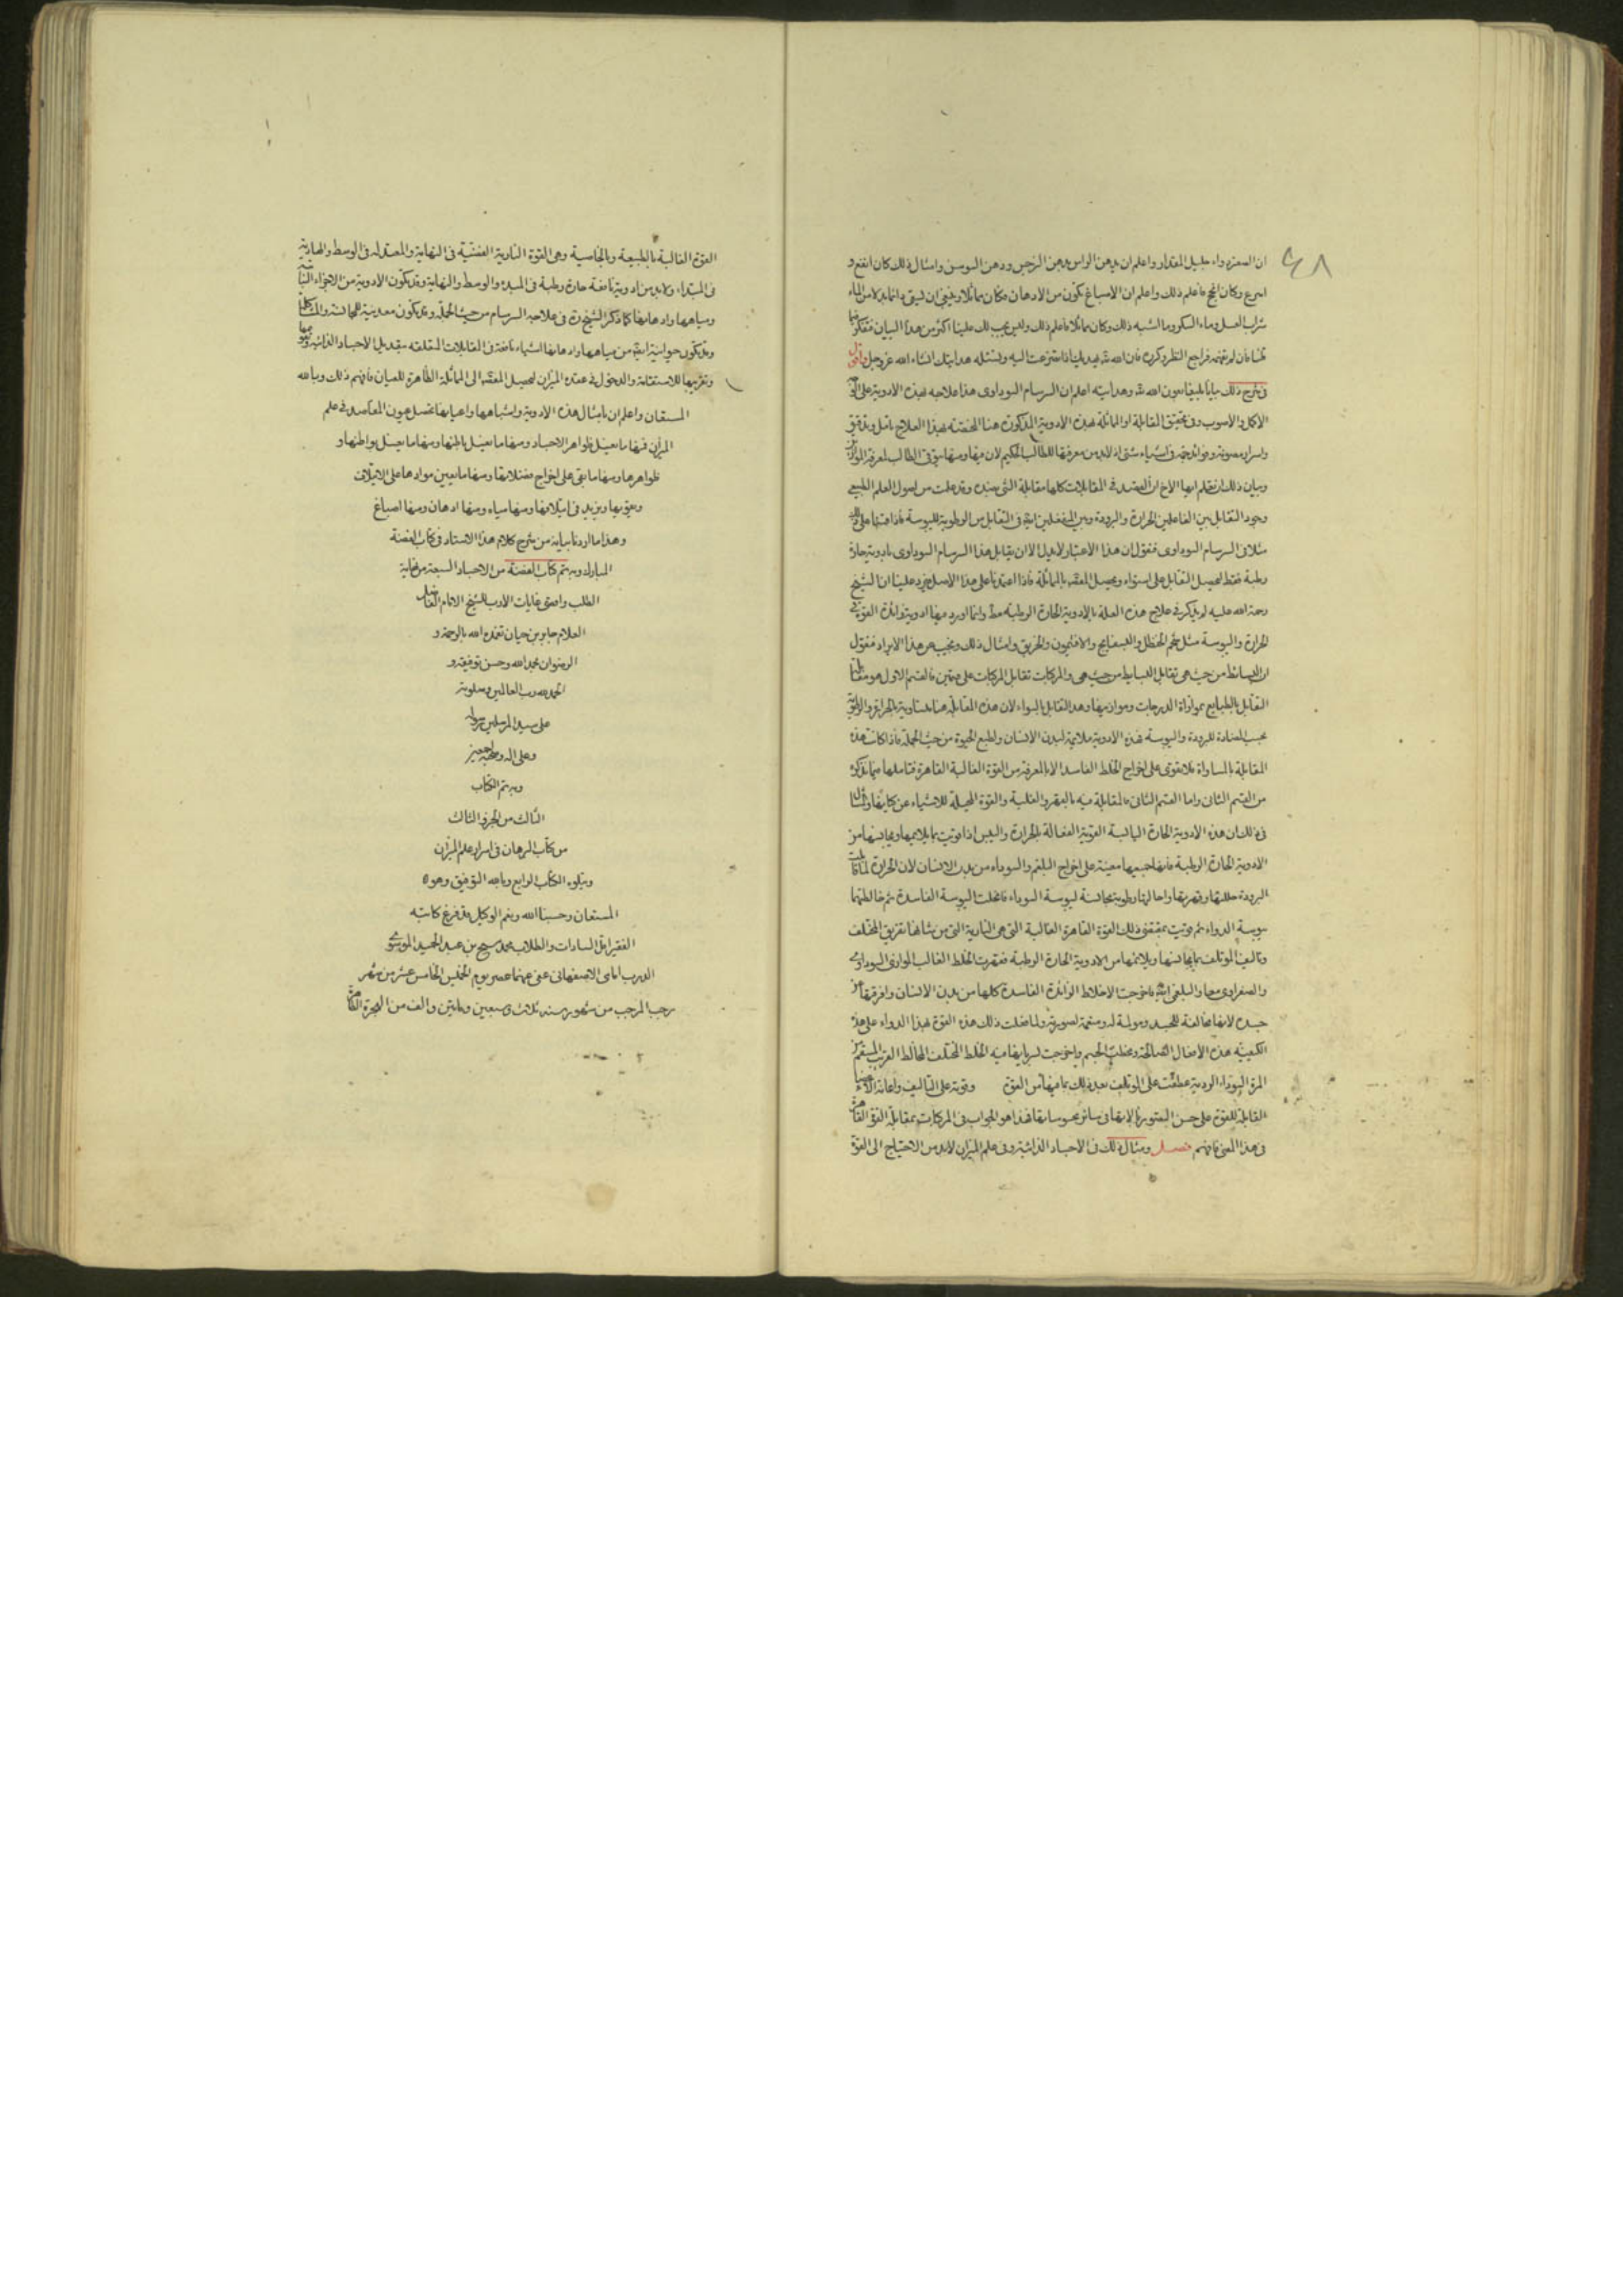 ٤٨
ان الصفرة دواء جليل المقدار واعلم ان دهن الراس بدهن النرجس ودهن السوسن وامثال ذلك كان انفع و
اسرع وكان انجح فاعلم ذلك واعلم ان الاصباغ تكون من الادهان فكان مماثلا وينبغي ان يسقى دائما بدلا من الماء
شراب العسل وماء السكر وما اشبه ذلك وكان مماثلا فاعلم ذلك وليس يجب لك علينا اكثر من هذا البيان
فان لم تفهم فراجع النظر وكرره فان الله يهديك اذا تضرعت اليه وتسئله هدايتك انشاء الله عز وجل واقول
في شرح ذلك بيانا بليغا بعون الله وهدايته اعلم ان السرسام السوداوى هذا علاجه بهذه الادوية على
الاكمل والاصوب وفي تحقيق المقابلة او المماثلة بهذه الادوية المذكورة هنا المختصة بهذا العلاج تامل وتدقيق
واسرار مصونة وفوائد جمة في اشياء شتى اذ لابد من معرفتها للطالب الحكيم لان فيها ومنها يترقى الطالب لمعرفة الموازين
وبيان ذلك ان تعلم ايها الاخ ان العمدة في المقابلات كلها مقابلة الشي بضده وقد علمت من اصول العلم الطبيعي
وجود التقابل بين الفاعلين الحرارة والبرودة وبين المنفعلين ايضا في التقابل من الرطوبة لليبوسة فاذا
مثلا في السرسام السوداوى فنقول ان هذا الاعتبار لا يدل الا ان يقابل هذا السرسام السوداوى بادوية حارة
رطبة فقط لتحصيل التقابل على استواء وتحصيل المعتد بالمماثلة فاذا اعتمدنا على هذا الاصل فيرد علينا ان الشيخ
رحمة الله عليه لم يذكر في علاج هذه العلة بالادوية الحارة الرطبة فقط وانما اورد فيها ادوية زائدة القوة في
الحرارة واليبوسة مثل شحم الحنظل والبسفايج والافتيمون والخربق وامثال ذلك ونجيب عن هذا الايراد فنقول
ان البسائط من حيث هي تقابل البسايط من حيث هي والمركبات تقابل المركبات على قسمين فالقسم الاول هو
التقابل بالطبايع بموازاة الدرجات وموازينها وهذا التقابل بالسواء لان هذه المقابلة هنا متساوية بالحرارة والرطوبة
بحسب المضادة للبرودة واليبوسة فهذه الادوية ملائمة لبدن الانسان ولطبع الحيوة من حيث الجملة فاذا كانت هذه
المقابلة بالمساواة فلا تقوى على اخراج الخلط الفاسد الا بالمعرفة من القوة الغالبة القاهرة فتاملها فيما نذكره
من القسم الثاني واما القسم الثاني فالمقابلة فيه بالقهر والغلبة والقوة المحيلة للاشياء عن كيانها
في ذلك ان هذه الادوية الحارة اليابسة القوية الفعالة بالحرارة واليبس اذا قويت بما يلائمها ويجانسها من
الادوية الحارة الرطبة فانها جميعها معينة على اخراج البلغم والسوداء من بدن الانسان لان الحرارة لما قابلت
البرودة حللتها وقهرتها واحالتها رطوبة مجانسة ليبوسة السوداء فانحلت اليبوسة الفاسدة ثم خالطتها
يبوسة الدواء ثم قويت بمقتضى ذلك القوة القاهرة الغالبة التي هي النارية التي من شانها تفريق المختلف
وتاليف المؤتلف بما يجانسها ويلائمها من الادوية الحارة الرطبة فقهرت الخلط الغالب الموازي السوداوى
والصفراوى معا والبلغمى ايضا فاخرجت الاخلاط الزائدة الفاسدة كلها من بدن الانسان وافرقتها من
جسده لانها مخالفة للجسد ومولمة له ومسقمة لصورته ولما فعلت ذلك هذه القوة بهذا الدواء على هذه
الكيفية هذه الافعال الصالحة وغلبت الجسم واخرجت لسريانها فيه الخلط المختلف المخالط الغريب المسقم من
المرة السوداء الردية عطفت على المؤتلف بعد ذلك بما فيها من القوة وقوته على التاليف واعانة الاعضاء
القابلة للقوة على حسن التصوير بالابها في سائر جسوسا بها فهذا هو الجواب في المركبات بمقابلة القوة القاهرة
في هذا المعنى فافهم فصل ومثال ذلك في الاجساد الذائبة وفي علم الميزان لابد من الاحتياج الى القوة
القوة الغالبة بالطبيعة وبالخاصية وهي القوة النارية الفضية في النهاية والمعتدله في الوسط والهادية
في المبتداء ولابد من ادوية نافعة حارة رطبة في المبدء والوسط والنهاية وقد تكون الادوية من الاجزاء النباتية
ومياهها وادهانها كما ذكر الشيخ في علاجه السرسام من حيث الجملة وقد تكون معدنية للمجانسة والمشاكلة
وقد تكون حيوانية ايضا من مياهها وادهانها اشياء نافعة في المقابلات المتعلقه بتعديل الاجساد الذائبة
وتقريبها للاستقامة والدخول في عقده الميزان لتحصيل المعتد الى المماثلة الظاهرة للعيان فافهم ذلك وبالله
المستعان واعلم ان بامثال هذه الادوية واشباهها واعيانها تحصل عيون المقاصد في علم
الميزان فمنها ما يغسل ظواهر الاجساد ومنها ما يغسل باطنها ومنها ما يغسل بواطنها و
ظواهرها ومنها ما يقوى على اخراج فضلاتها ومنها ما يعين موادها على الايتلاف
ويقويها ويزيد في ايتلافها ومنها مياه ومنها ادهان ومنها اصباغ
وهذا ما اردنا بيانه من شرح كلام هذا الاستاد في كتاب الفضة
المبارك وبه يتم كتاب الفضة من الاجساد السبعة من غاية
الطلب واقصى غايات الادب للشيخ الامام الفاضل
العلام جابر بن حيان تغمده الله بالرحمة و
الرضوان بحمد الله وحسن توفيقه و
الحمد لله رب العالمين وصلوته
على سيد المرسلين رسوله
وعلى اله وصحبه اجمعين
وبه يتم الكتاب
الثالث من الجزء الثالث
من كتاب البرهان في اسرار علم الميزان
ويتلوه الكتاب الرابع وبالله التوفيق وهو
المستعان وحسبنا الله ونعم الوكيل قد فرغ كاتبه
الفقير اقل السادات والطلاب محمد مسيح بن عبد الحميد الموسوي
الدرب امامى الاصفهاني عفى عنهما عصر يوم الخميس الخامس عشر من شهر
رجب المرجب من شهور سنه ثلاث وسبعين ومائتين والف من الهجرة